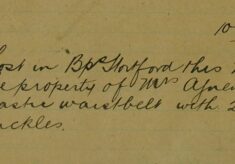 10
ost in Bps Stortford this
e property of Mrs Agne
astic waistbelt with 2
uckles.